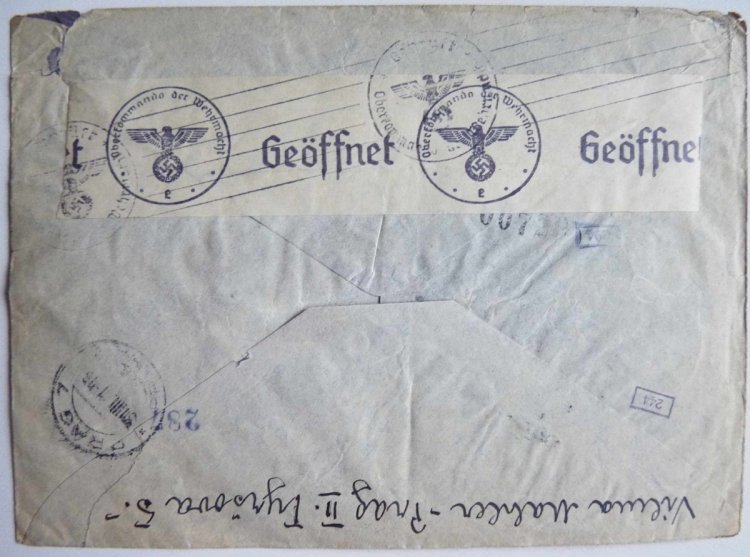 Geprüft
Oberkommando der Wehrmacht
e
Geöffnet
Oberkommando der Wehrmacht
e
Geöffne
t
00730
PRAG 1
287
244
Vilma Mahler - Prag II. Tyršova 5.